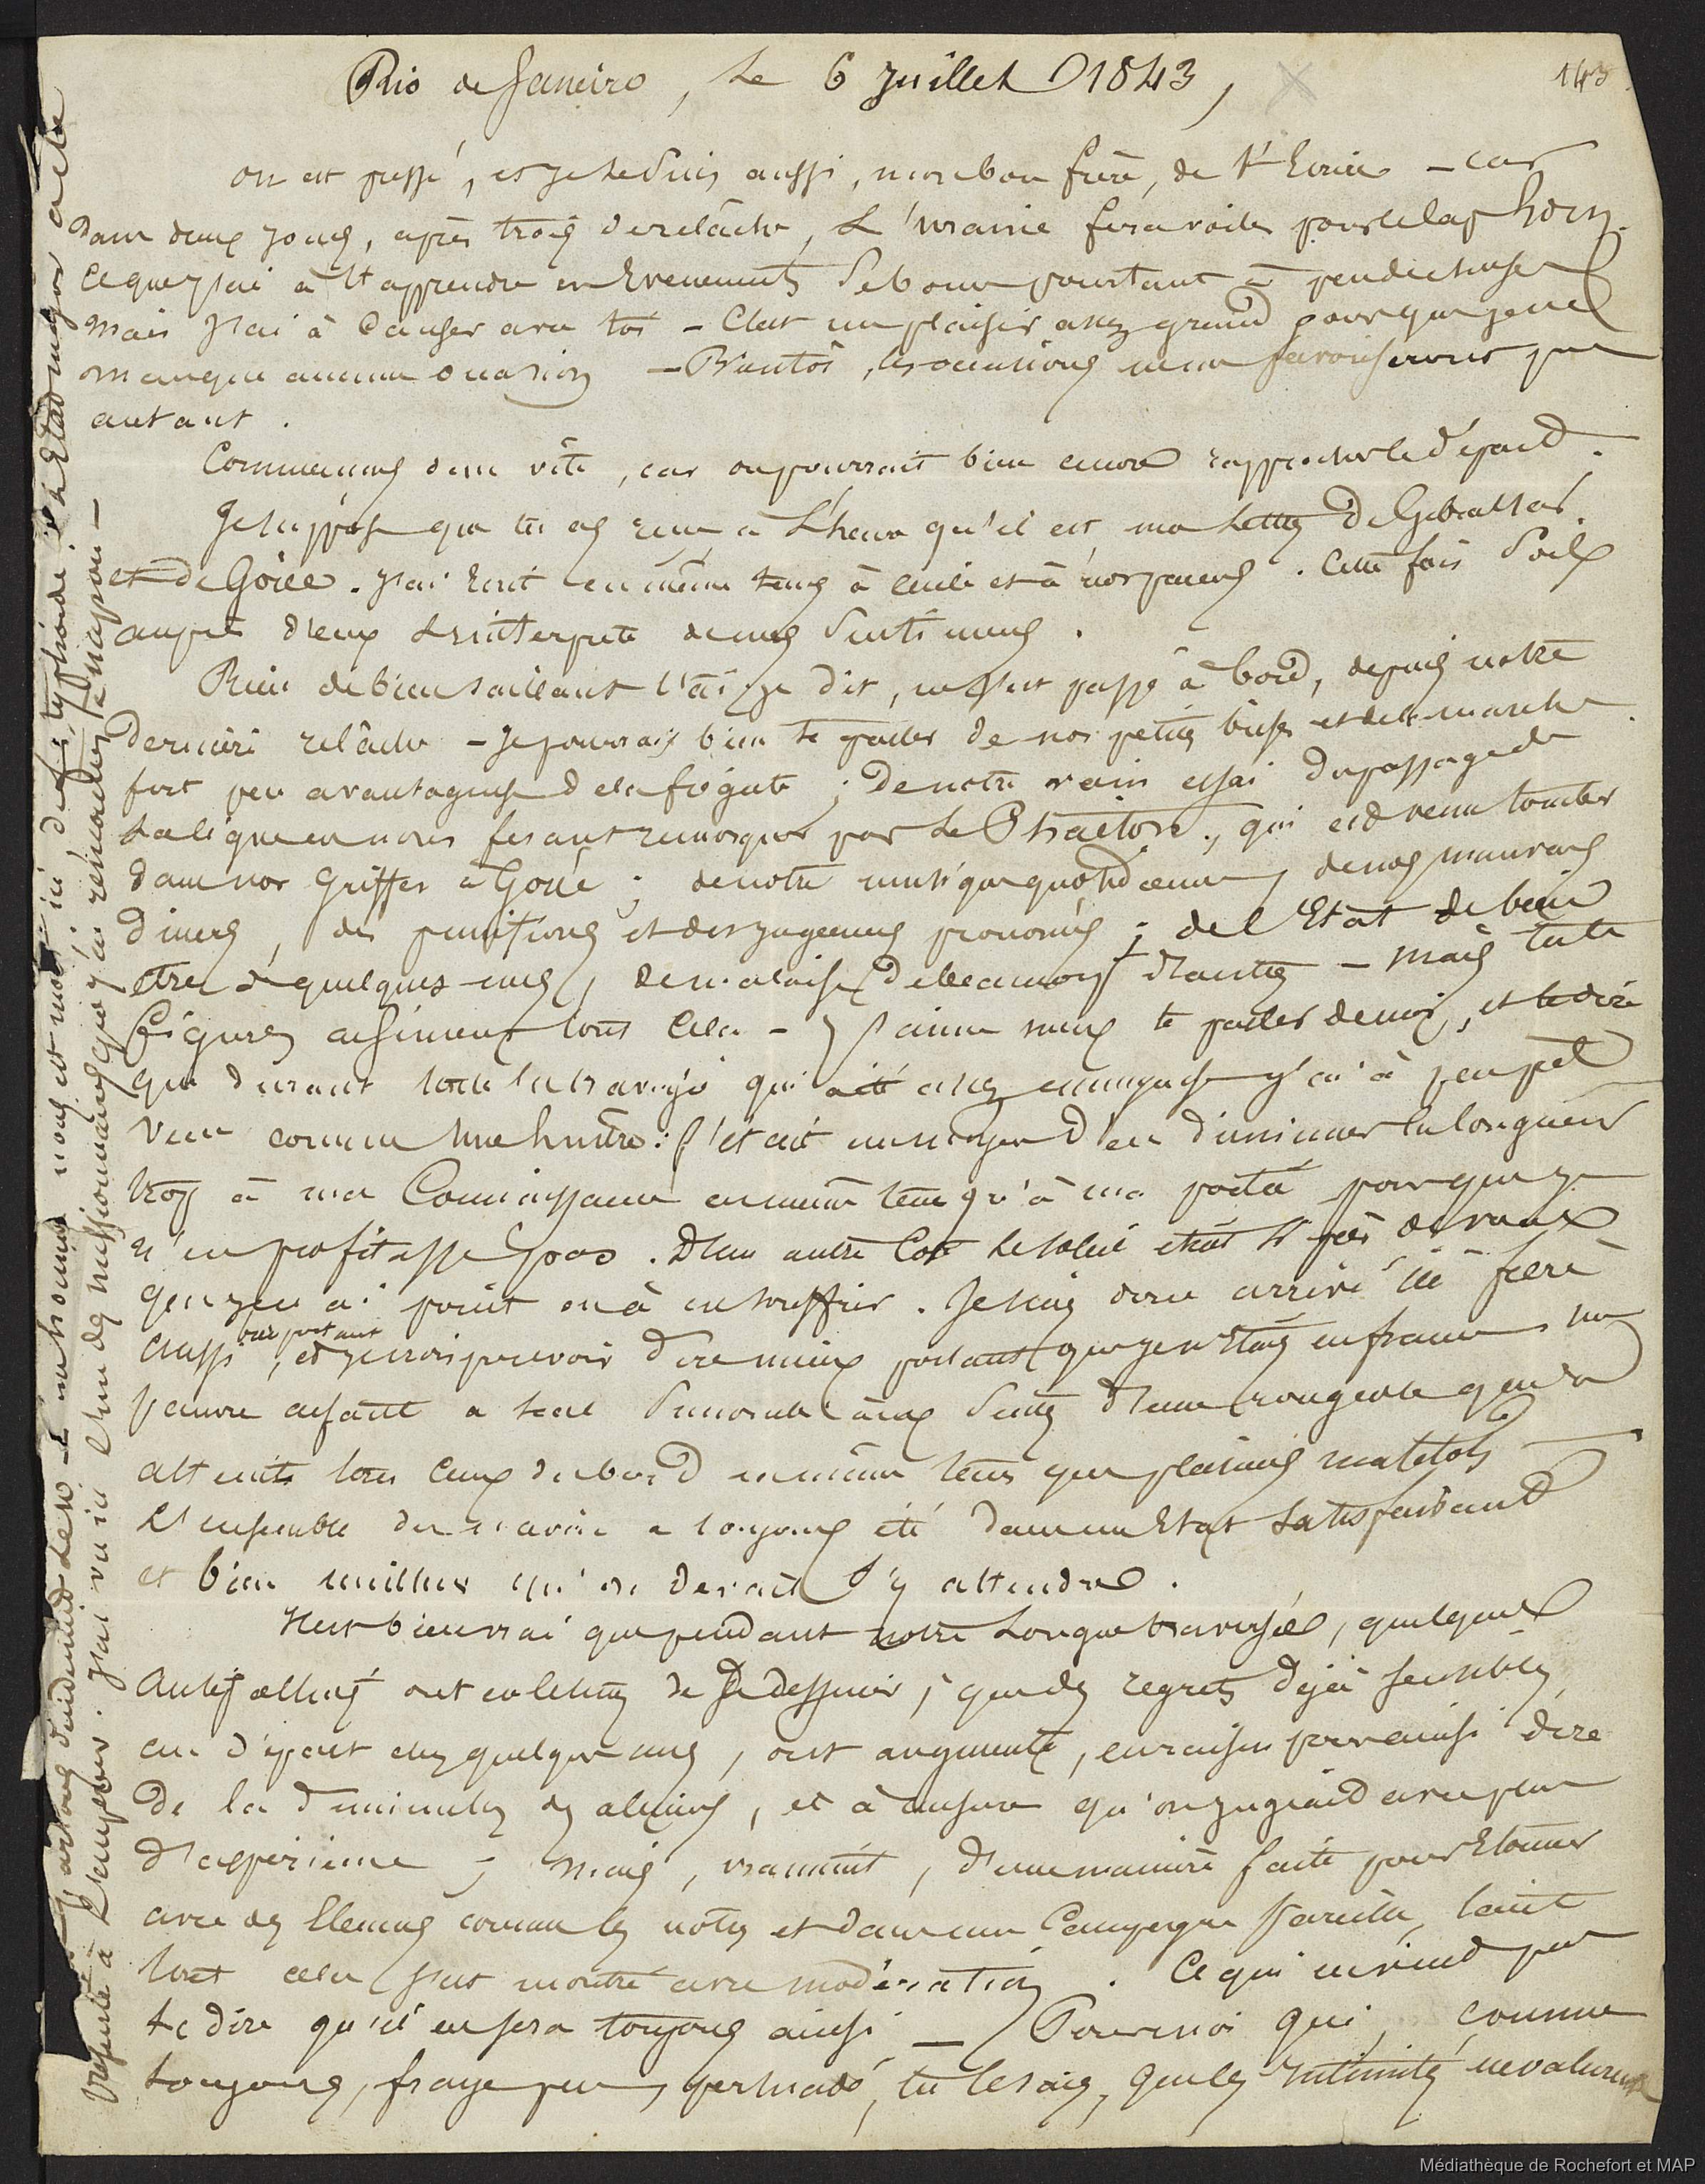 143
Rio de Janeiro, le 6 Juillet 1843,
On est pressé, et je le suis aussi, mon bon frère, de t'Ecrire – car
dans deux jours, après trois de relâche, L'uranie fera voiles pour le cap horn.
Ce que j'ai à t'apprendre en Evenements se borne pourtant à peu de chose
mais j'ai à Causer avec toi – C'est un plaisir assez grand pour que je n'en
manque aucune occasion – Bientôt, les occasions ne me favoriseront pas
autant.
Commençons donc vite, car on pourrait bien encore rapprocher le départ.
Je suppose que tu as reçu à L'heure qu'il est, ma lettre De Gibraltar
et de Gorée. J'ai Ecrit en même temps à et à nos parens. Cette fois Sois
auprès d'eux L'interprete de mes Sentimens.
Rien de bien saillant t'ai je dit, ne s'est passé à bord, depuis notre
dernière relâche – Je pourrais bien te parler de nos petites et de la marche
fort peu avantageuse de la frégate ; De notre vain essai du passage de
La ligne en nous fesant remorquer par Le Phaéton, qui est venu tomber
dans nos Griffes à Gorée ; de notre musique quotidienne, de nos mauvais
diners, des punitions et des jugemens prononcés ; de l'Etat de bien
être de quelques uns, de malaise de beaucoup d'autres – Mais tu te
figures aisément tout Cela – J'aime mieux te parler de moi, et te dire
que durant toute la traversée qui a été assez ennuyeuse j'ai à peu près
Vécu comme une huitre : c'était un moyen d'en diminuer la longueur
trop à ma Connaissance en même tems qu'à ma portée pour que je
n'en profitasse pas. D'un autre Coté le soleil était si près de nous
que je n'ai point eu à en souffrir. Je suis donc arrivé ici frère
aussi bien portant, et je crois pouvoir dire mieux portant que je n'étais en france
pauvre enfant a seul Succombé aux Suites d'une rougeole qui a
atteint tous Ceux du bord en même tems que plusieurs matelots
L'ensemble du navire a toujours été dans un Etat satisfaisant
et bien meilleur qu'on devait s'y attendre.
Il est bien vrai que pendant notre Longue traversée, quelques
ont eu le tems de se dessiner ; que des regrets déjà sensibles
au départ chez quelques uns, ont augmenté, en raison pour ainsi dire
De la diminution des alizés, et à mesure qu'on jugeait avec plus
d'expérience ; mais, vraiment, d'une manière faite pour Etonner
avec des Elemens comme les notres et dans une Campagne pareille, tant
tout cela s'est montré avec modération. Ce qui ne veut pas
te dire qu'il en sera toujours ainsi – Pour moi qui, comme
toujours, fraye peu, persuadé, tu le sais, que les intimités ne valurent
nous et nous ici, typhoïde. L'Etat major a été
présenté à L'empereur. J'ai vu ici L'un des missionnaires que j'ai rencontrés à